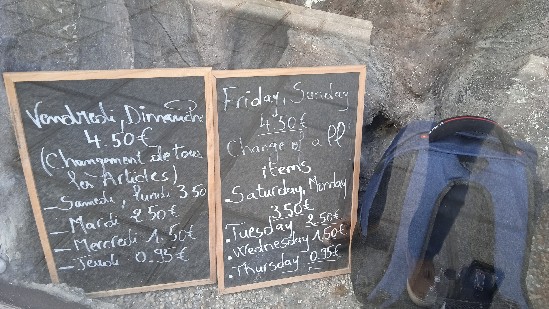 Vendredi, Dimanche
4.50€
(Changement de tous
les Articles)
- Samedi, lundi 3.50
- Mardi 2.50€
- Mercredi 1.50€
- Jeudi 0.95€
Friday, Sunday
4.50€
Change of all
items
. Saturday, Monday
3.50€
. Tuesday 2.50€
. Wednesday 1.50€
. Thursday 0.95€